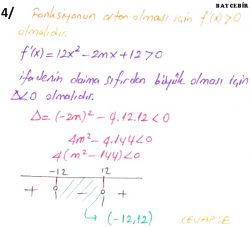 BAYCEBİR
4/ Fonksiyonun artan olması için f'(x)>0
olmalıdır.
f'(x)=12x²-2mx+12>0
ifadenin daima sıfırdan büyük olması için
Δ<0 olmalıdır.
Δ=(-2m)²-4.12.12<0
4m²-4.144<0
4(m²-144)<0
-12 12
+ - +
(-12,12) CEVAP:E